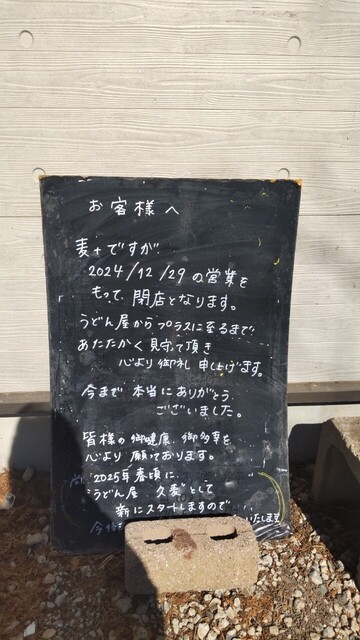 お客様へ
麦+ですが
2024/12/29の営業を
もって、閉店となります。
うどん屋からプラスに至るまで
あたたかく見守って頂き
心より御礼申し上げます。
今まで本当にありがとう
ございました。
皆様の御健康、御多幸を
心より願っております。
2025年春頃に
"うどん屋 久麦"として
新にスタートしますので
いたします